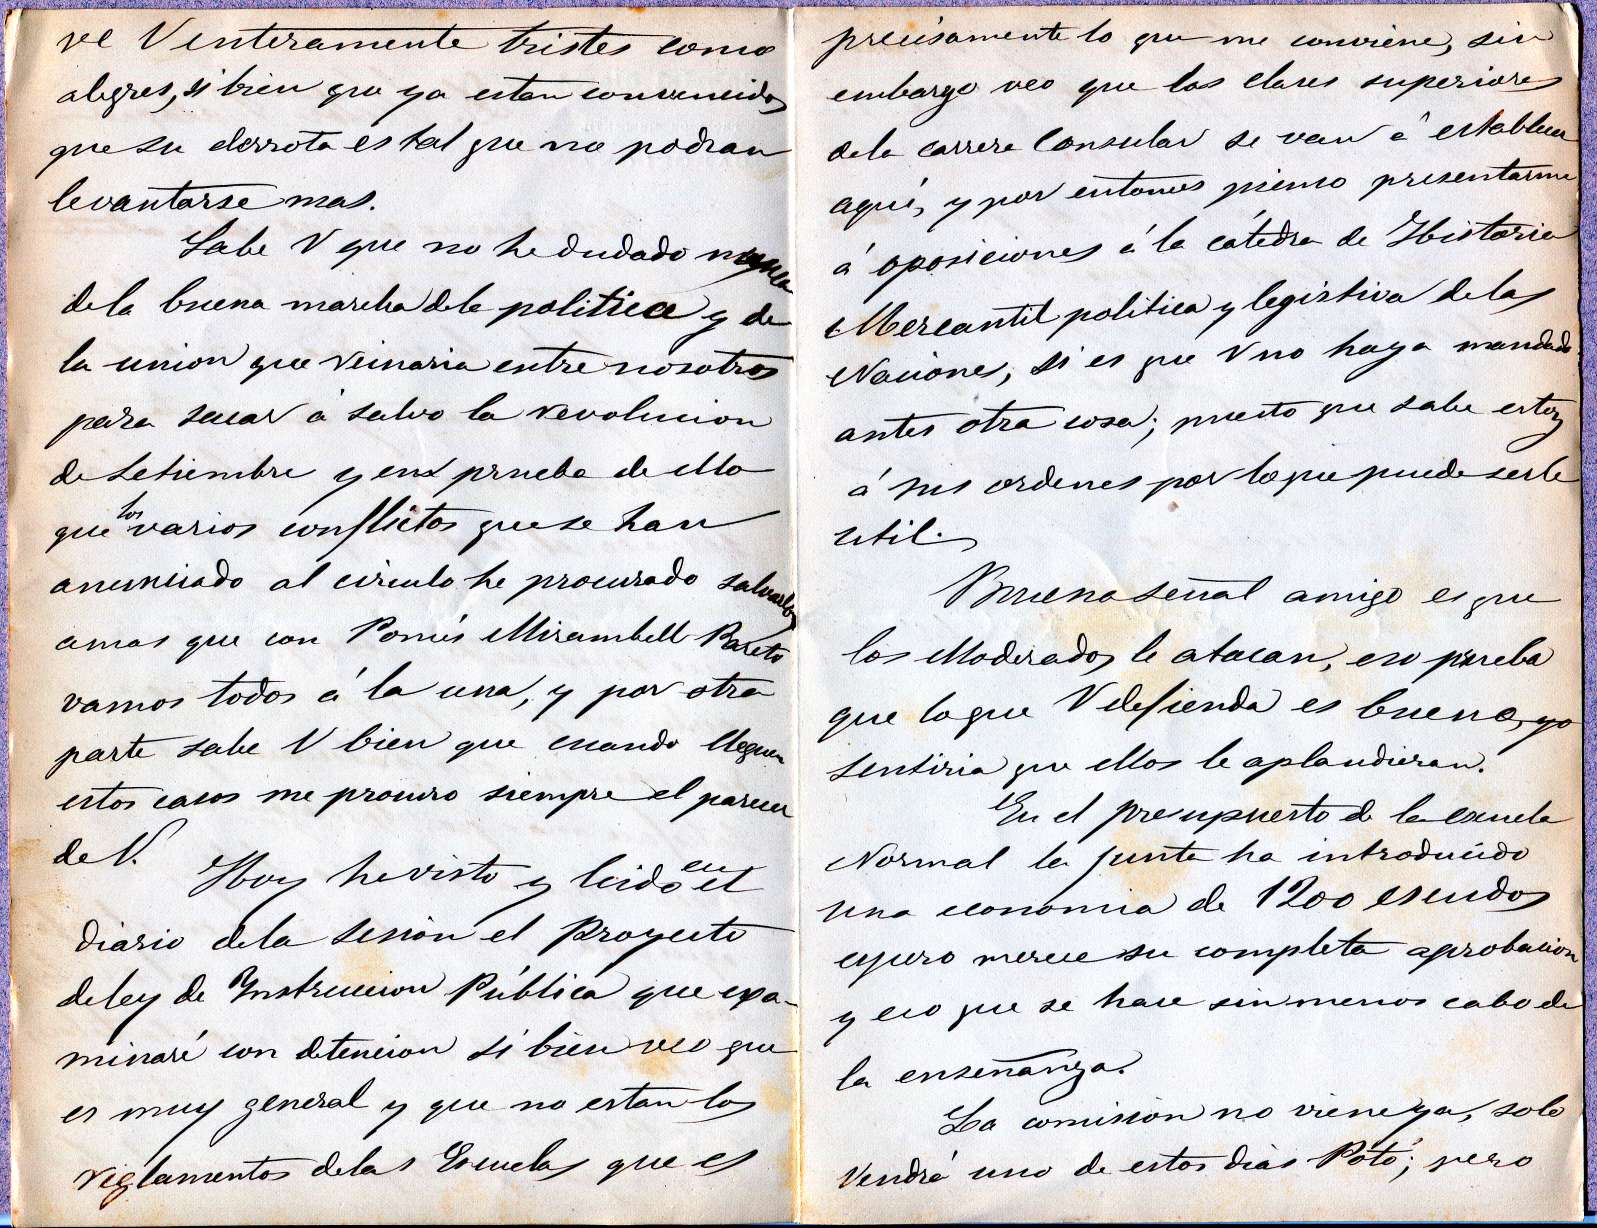 ve V enteramente tristes como
alegres, si bien que ya estan convencidos
que su derrota es tal que no podran
levantarse mas.
Sabe V que no he dudado nunca
de la buena marcha de la politica y de
la union que reinaria entre nosotros
para sacar á salvo la revolucion
de Setiembre y en prueba de ello
que los varios conflictos que se han
anunciado al circulo he procurado salvarlos
amas que con Pomés Mirambell Bareto
vamos todos á la una, y por otra
parte sabe V bien que cuando lleguen
estos casos me procuro siempre el parecer
de V.
Hoy he visto y leido en el
diario de la sesion el Proyecto
de ley de Ynstruccion Pública que exa-
minaré con detencion si bien veo que
es muy general y que no estan los
reglamentos de las Escuelas que es
precisamente lo que me conviene, sin
embargo veo que las clases superiores
de la carrera Consular se van á establecer
aqui, y por entonces pienso presentarme
á oposiciones á la cátedra de Historia
Mercantil politica y legistiva de las
Naciones, si es que V no haya mandado
antes otra cosa; puesto que sabe estoy
á sus ordenes por lo que puede serle
util.
Buena señal amigo es que
los Moderados le atacan, eso prueba
que lo que V defienda es bueno, yo
sentiria que ellos le aplaudieran.
En el presupuesto de la escuela
Normal la junta ha introducido
una economia de 1200 escudos
espero merece su completa aprobacion
y eso que se hace sin menos cabo de
la enseñanza.
La comision no viene ya, solo
vendrá uno de estos dias Potó; pero